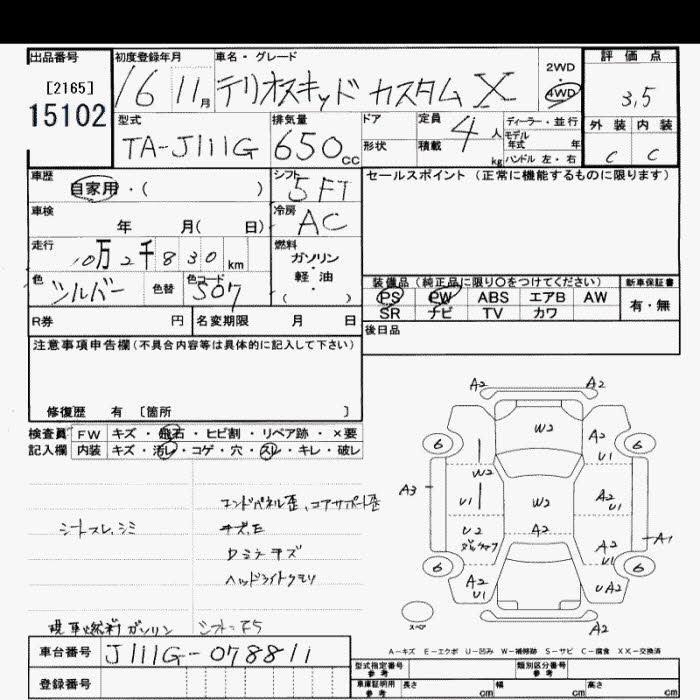 出品番号 初度登録年月 車名・グレード 評価点
[2165]
15102
16 11月 テリオスキッド カスタム X
2WD
・
4WD
3.5
型式 排気量 ドア 定員 4人 ディーラー・並行
外装 内装
TA-J111G 650cc
形状 積載 kg
モデル年式 年
ハンドル 左・右
C C
車歴 シフト セールスポイント(正常に機能するものに限ります)
自家用・( ) 5FT
車検 冷房
年 月( 日) AC
走行 燃料
10万2千830km
ガソリン
・
軽・油
・
( )
色 色替 色コード
シルバー S07
装備品(純正品に限り○をつけてください) 新車保証書
PS PW ABS エアB AW 有・無
SR ナビ TV カワ
R券 円 名変期限 月 日
後日品
注意事項申告欄(不具合内容等は具体的に記入して下さい)
修復歴 有 [箇所 ]
検査員 FW キズ・飛石・ヒビ割・リペア跡・×要
記入欄 内装 キズ・汚レ・コゲ・穴・スレ・キレ・破レ
エンドパネル歪、コアサポート歪
シートスレ、シミ
キズ、E
ヘッドライトクモリ
現車燃料 ガソリン シフト=F5
A2 A2
W2
6 A2 U1 6
W2
A3 U1 W2 A2 U1
U2 A2 A2 U1 A1
6 6
A2 U1 UA2
スペア A2
A-キズ E-エクボ U-凹み W-補修跡 S-サビ C-腐食 XX-交換済
車台番号 J111G-078811
登録番号
型式指定番号 参考 類別区分番号 参考
車庫証明用 参考 長さ cm 幅 cm 高さ cm